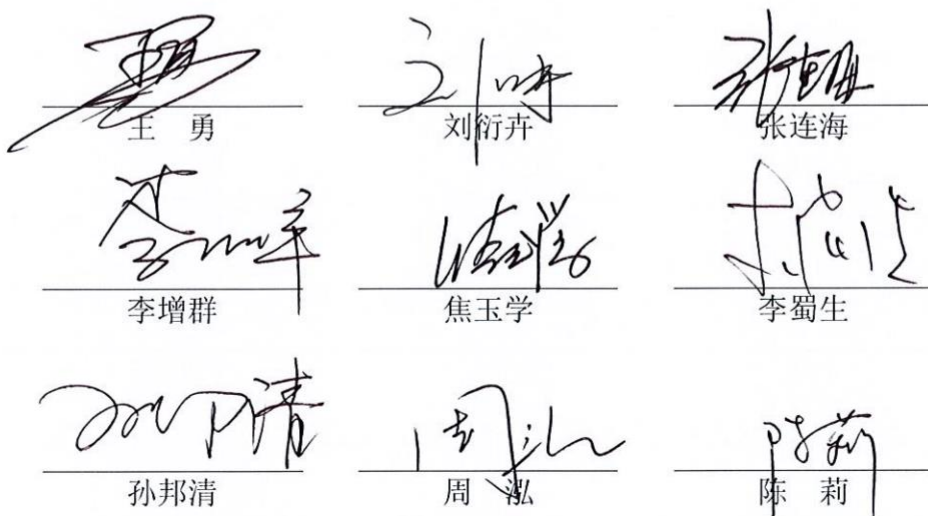 王　勇　刘衍卉　张连海
李增群　焦玉学　李蜀生
孙邦清　周　泓　陈　莉